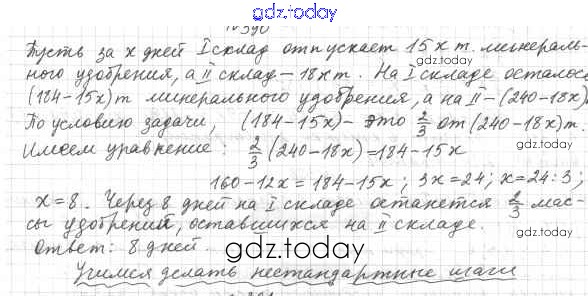 gdz.today
№390
Пусть за x дней I склад отпускает 15x т. минераль-
ного удобрения, а II склад - 18x т. На I складе осталось
(184-15x) т минерального удобрения, а на II - (240-18x)
По условию задачи, (184-15x) - это 2/3 от (240-18x) т.
Имеем уравнение: 2/3 (240-18x) = 184-15x
160-12x = 184-15x; 3x=24; x=24:3;
x=8. Через 8 дней на I складе останется 2/3 мас-
сы удобрений, оставшихся на II складе.
Ответ: 8 дней.
gdz.today
Учимся делать нестандартные шаги